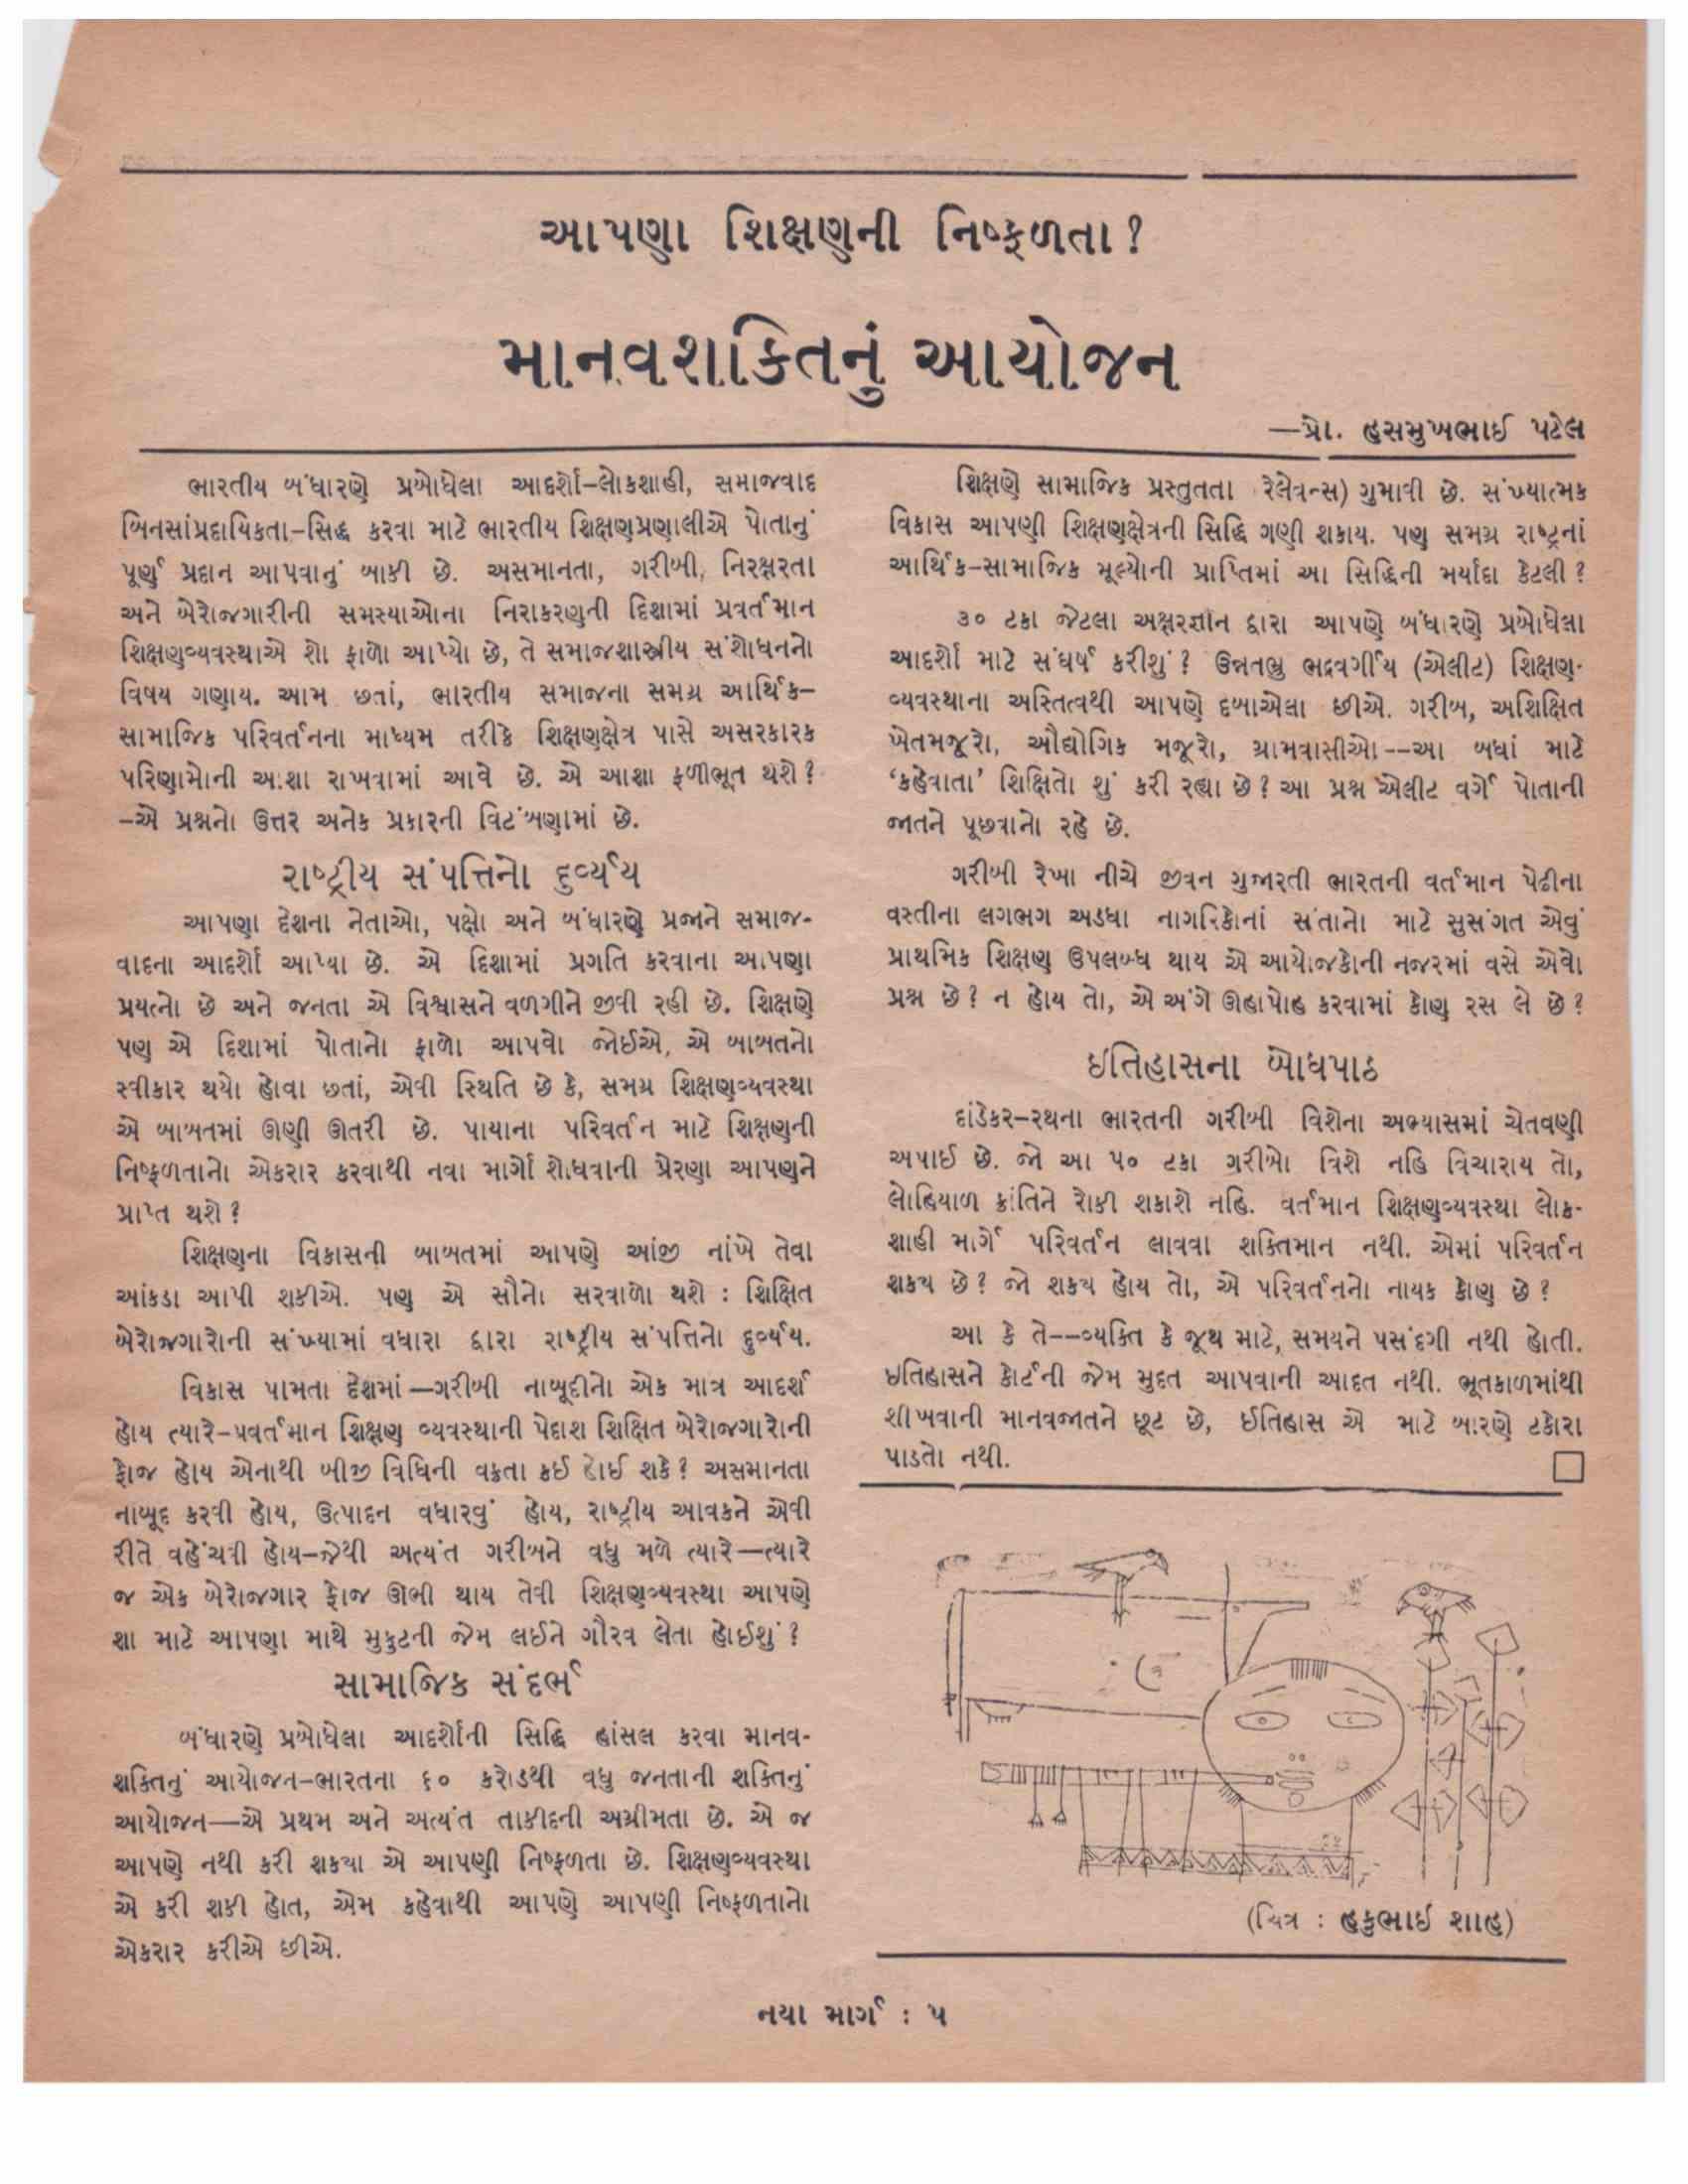 આપણા શિક્ષણની નિષ્ફળતા ?
માનવશક્તિનું આયોજન
—પ્રો. હસમુખભાઈ પટેલ
ભારતીય બંધારણે પ્રબોધેલા આદર્શો–લોકશાહી, સમાજવાદ
બિનસાંપ્રદાયિકતા–સિદ્ધ કરવા માટે ભારતીય શિક્ષણપ્રણાલીએ પોતાનું
પૂર્ણ પ્રદાન આપવાનું બાકી છે. અસમાનતા, ગરીબી, નિરક્ષરતા
અને બેરોજગારીની સમસ્યાઓના નિરાકરણની દિશામાં પ્રવર્તમાન
શિક્ષણવ્યવસ્થાએ શો ફાળો આપ્યો છે, તે સમાજશાસ્ત્રીય સંશોધનનો
વિષય ગણાય. આમ છતાં, ભારતીય સમાજના સમગ્ર આર્થિક–
સામાજિક પરિવર્તનના માધ્યમ તરીકે શિક્ષણક્ષેત્ર પાસે અસરકારક
પરિણામોની આશા રાખવામાં આવે છે. એ આશા ફળીભૂત થશે ?
–એ પ્રશ્નનો ઉત્તર અનેક પ્રકારની વિટંબણામાં છે.
રાષ્ટ્રીય સંપત્તિનો દુર્વ્યય
આપણા દેશના નેતાઓ, પક્ષો અને બંધારણે પ્રજાને સમાજ-
વાદના આદર્શો આપ્યા છે. એ દિશામાં પ્રગતિ કરવાના આપણા
પ્રયત્નો છે અને જનતા એ વિશ્વાસને વળગીને જીવી રહી છે. શિક્ષણે
પણ એ દિશામાં પોતાનો ફાળો આપવો જોઈએ, એ બાબતનો
સ્વીકાર થયો હોવા છતાં, એવી સ્થિતિ છે કે, સમગ્ર શિક્ષણવ્યવસ્થા
એ બાબતમાં ઊણી ઊતરી છે. પાયાના પરિવર્તન માટે શિક્ષણની
નિષ્ફળતાનો એકરાર કરવાથી નવા માર્ગો શોધવાની પ્રેરણા આપણને
પ્રાપ્ત થશે ?
શિક્ષણના વિકાસની બાબતમાં આપણે આંજી નાંખે તેવા
આંકડા આપી શકીએ. પણ એ સૌનો સરવાળો થશે : શિક્ષિત
બેરોજગારોની સંખ્યામાં વધારા દ્વારા રાષ્ટ્રીય સંપત્તિનો દુર્વ્યય.
વિકાસ પામતા દેશમાં —ગરીબી નાબૂદીનો એક માત્ર આદર્શ
હોય ત્યારે–પ્રવર્તમાન શિક્ષણ વ્યવસ્થાની પેદાશ શિક્ષિત બેરોજગારોની
ફોજ હોય એનાથી બીજી વિધિની વક્રતા કઈ હોઈ શકે ? અસમાનતા
નાબૂદ કરવી હોય, ઉત્પાદન વધારવું હોય, રાષ્ટ્રીય આવકને એવી
રીતે વહેંચવી હોય–જેથી અત્યંત ગરીબને વધુ મળે ત્યારે—ત્યારે
જ એક બેરોજગાર ફોજ ઊભી થાય તેવી શિક્ષણવ્યવસ્થા આપણે
શા માટે આપણા માથે મુકુટની જેમ લઈને ગૌરવ લેતા હોઈશું ?
સામાજિક સંદર્ભ
બંધારણે પ્રબોધેલા આદર્શોની સિદ્ધિ હાંસલ કરવા માનવ-
શક્તિનું આયોજન–ભારતના ૬૦ કરોડથી વધુ જનતાની શક્તિનું
આયોજન—એ પ્રથમ અને અત્યંત તાકીદની અગ્રીમતા છે. એ જ
આપણે નથી કરી શક્યા એ આપણી નિષ્ફળતા છે. શિક્ષણવ્યવસ્થા
એ કરી શકી હોત, એમ કહેવાથી આપણે આપણી નિષ્ફળતાનો
એકરાર કરીએ છીએ.
શિક્ષણે સામાજિક પ્રસ્તુતતા રેલેવન્સ) ગુમાવી છે. સંખ્યાત્મક
વિકાસ આપણી શિક્ષણક્ષેત્રની સિદ્ધિ ગણી શકાય. પણ સમગ્ર રાષ્ટ્રનાં
આર્થિક–સામાજિક મૂલ્યોની પ્રાપ્તિમાં આ સિદ્ધિની મર્યાદા કેટલી ?
૩૦ ટકા જેટલા અક્ષરજ્ઞાન દ્વારા આપણે બંધારણે પ્રબોધેલા
આદર્શો માટે સંઘર્ષ કરીશું ? ઉન્નતભ્રુ ભદ્રવર્ગીય (એલીટ) શિક્ષણ-
વ્યવસ્થાના અસ્તિત્વથી આપણે દબાએલા છીએ. ગરીબ, અશિક્ષિત
ખેતમજૂરો, ઔદ્યોગિક મજૂરો, ગ્રામવાસીઓ--આ બધાં માટે
‘કહેવાતા’ શિક્ષિતો શું કરી રહ્યા છે ? આ પ્રશ્ન એલીટ વર્ગે પોતાની
જાતને પૂછવાનો રહે છે.
ગરીબી રેખા નીચે જીવન ગુજારતી ભારતની વર્તમાન પેઢીના
વસ્તીના લગભગ અડધા નાગરિકોનાં સંતાનો માટે સુસંગત એવું
પ્રાથમિક શિક્ષણ ઉપલબ્ધ થાય એ આયોજકોની નજરમાં વસે એવો
પ્રશ્ન છે ? ન હોય તો, એ અંગે ઊહાપોહ કરવામાં કોણ રસ લે છે ?
ઈતિહાસના બોધપાઠ
દાંડેકર–રથના ભારતની ગરીબી વિશેના અભ્યાસમાં ચેતવણી
અપાઈ છે. જો આ ૫૦ ટકા ગરીબો વિશે નહિ વિચારાય તો,
લોહિયાળ ક્રાંતિને રોકી શકાશે નહિ. વર્તમાન શિક્ષણવ્યવસ્થા લોક-
શાહી માર્ગે પરિવર્તન લાવવા શક્તિમાન નથી. એમાં પરિવર્તન
શક્ય છે ? જો શક્ય હોય તો, એ પરિવર્તનનો નાયક કોણ છે ?
આ કે તે--વ્યક્તિ કે જૂથ માટે, સમયને પસંદગી નથી હોતી.
ઇતિહાસને કોર્ટની જેમ મુદ્દત આપવાની આદત નથી. ભૂતકાળમાંથી
શીખવાની માનવજાતને છૂટ છે, ઈતિહાસ એ માટે બારણે ટકોરા
પાડતો નથી.
(ચિત્ર : હકુભાઈ શાહ)
નયા માર્ગ : ૫